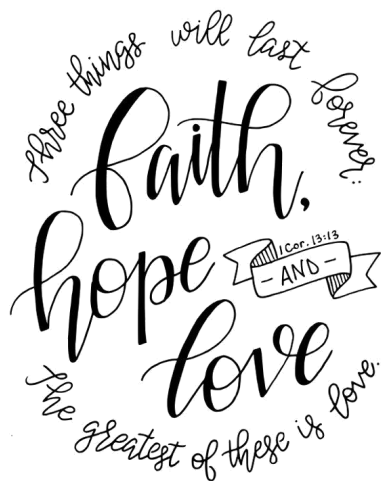 three things will last forever:
faith,
hope
1 Cor. 13:13
- AND -
love
The greatest of these is love.